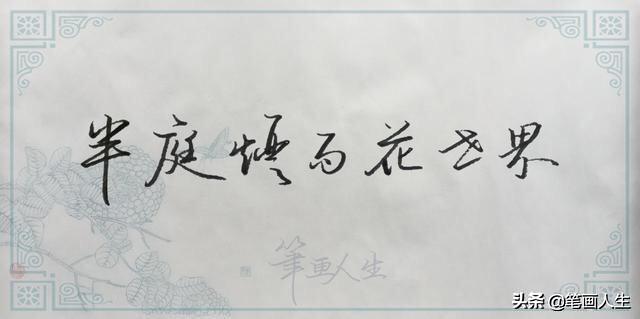 半庭煙雨花世界
筆画人生
头条 @笔画人生